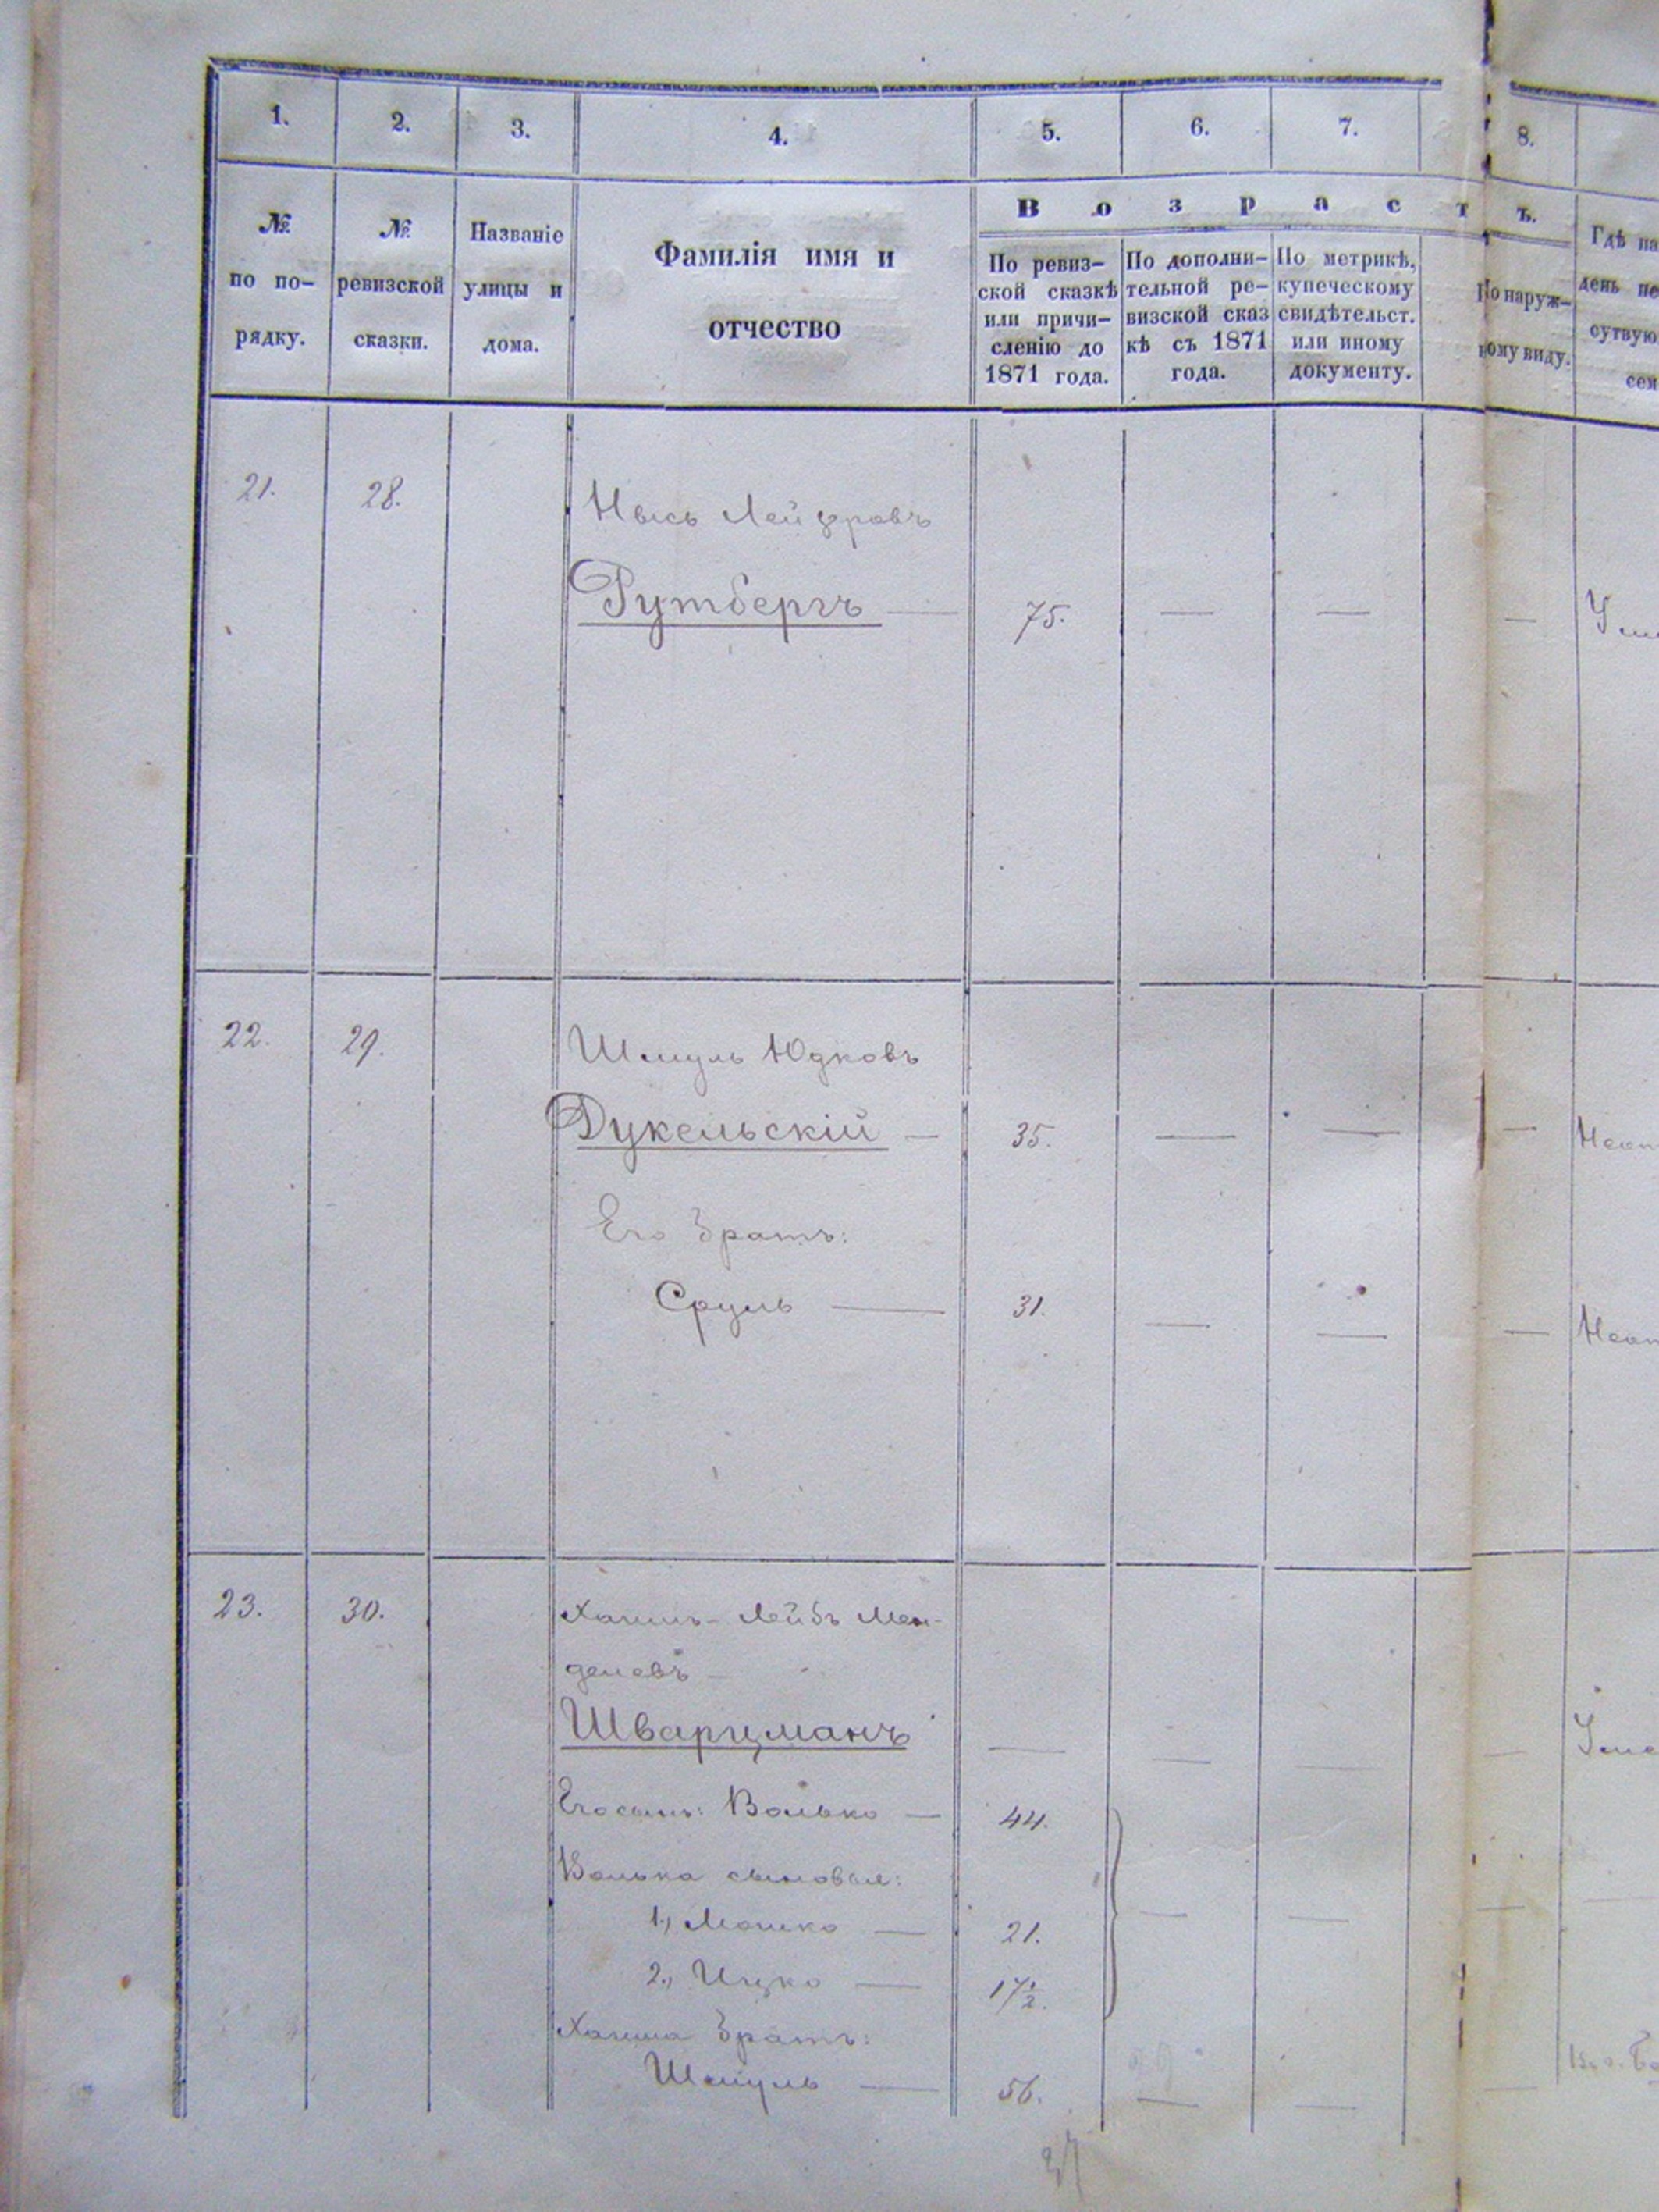 1. 2. 3. 4. 5. 6. 7. 8.
В о з р а с т ъ.
№ по по-рядку.
№ ревизской сказки.
Названіе улицы и дома.
Фамилія имя и
отчество
По ревиз-
ской сказкѣ
или причи-
сленію до
1871 года.
По дополни-
тельной ре-
визской сказ
кѣ съ 1871
года.
По метрикѣ,
купеческому
свидѣтельст.
или иному
документу.
По наруж-
ному виду.
Гдѣ на
день пе
сутвую
сем
21. 28. Лейзровъ
Рутбергъ — 75. — — —
22. 29. Шмуль Юдковъ
Дукельскій — 35. — — —
Его братъ:
Сруль — 31. — — —
23. 30. Хаимъ-Лейбъ Мен-
делевъ —
Шварцманъ — — — —
Его сынъ: Волько — 44.
Волька сыновья:
1., Мошко — 21. — — —
2., Ицко — 17½.
Хаима братъ:
Шмуль — 56. — — —
37